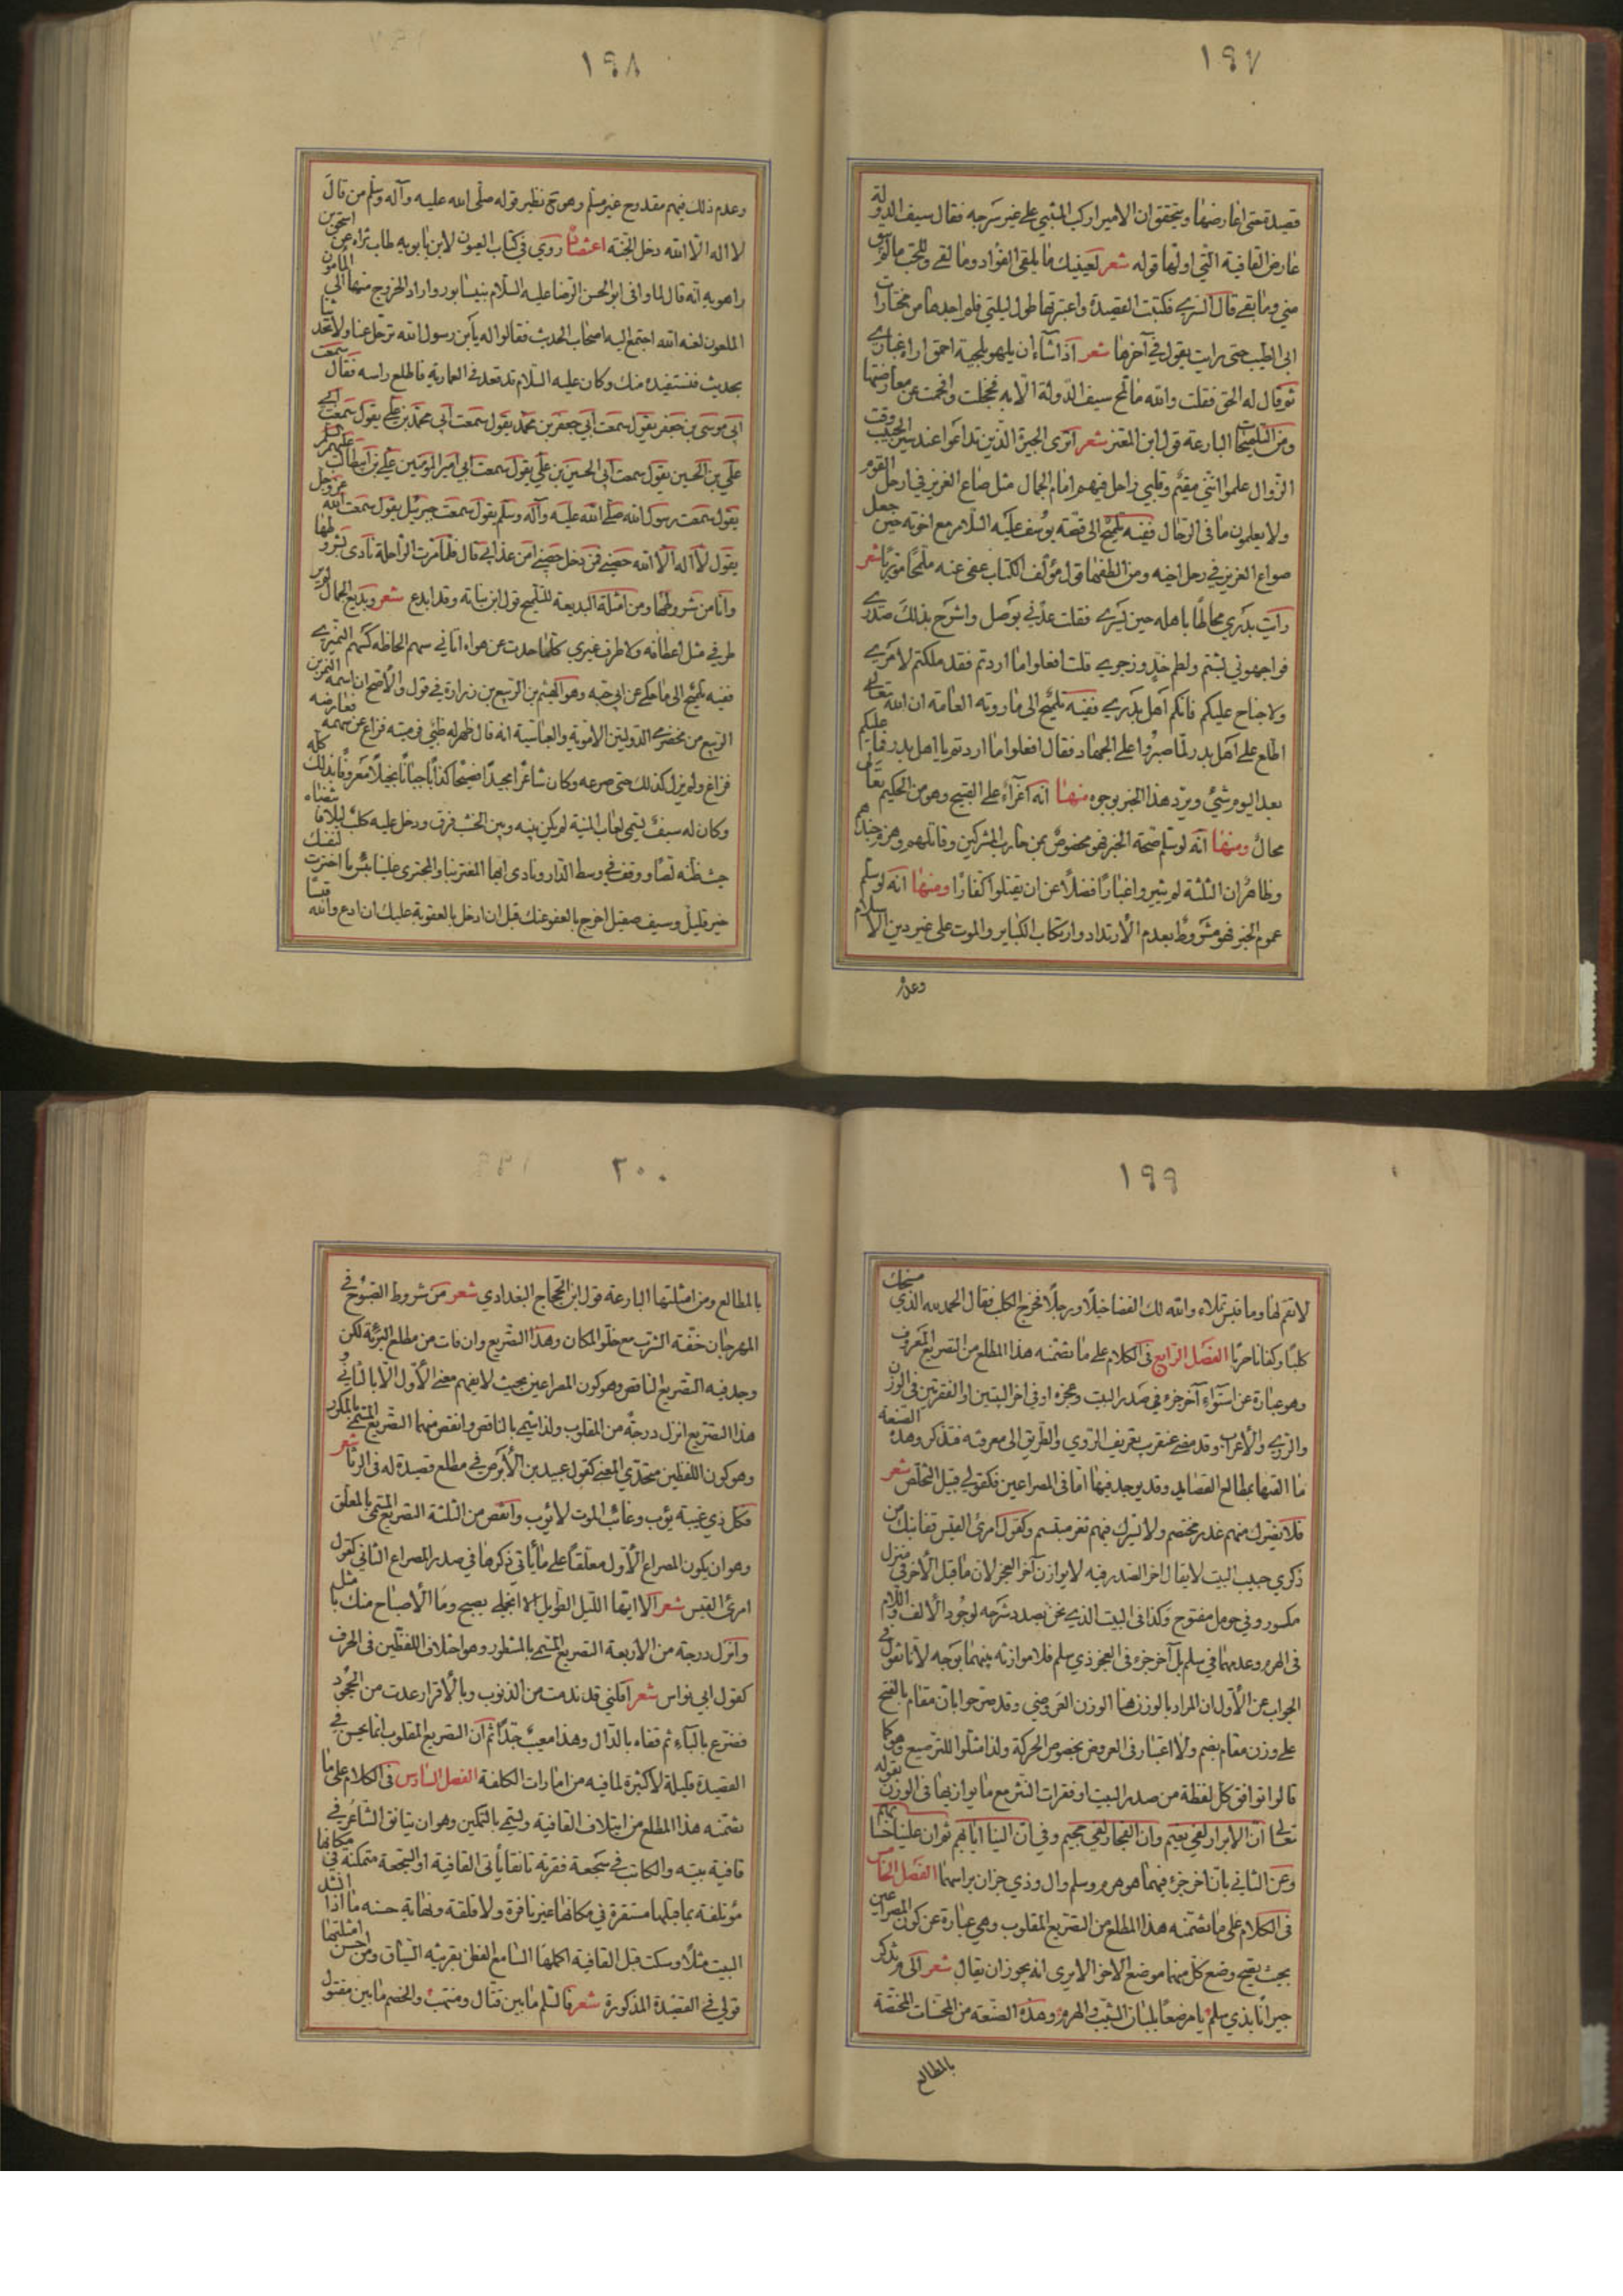 ١٩٧
قصيدة حتى اعارضها ويتحقق ان الامير اركب المتنبي على غير سرجه فقال سيف الدولة
عارض القافية التي اولها قوله شعر لعينيك ما يلقى الفؤاد وما لقى وللحب ما لم يبق
مني وما بقى قال السري فكتبت القصيدة واعتبرتها طول ليلتي فلم اجدها من مختارات
ابى الطيب حتى رايت يقول في آخرها شعر اذا شاء ان يلهو بلحية احمق اراه غباري
ثم قال له الحق فقلت والله ما لمح سيف الدولة الا به فخجلت وافحمت عن معارضتها
ومن التلميحات البارعة قول ابن المعتز شعر اترى الجيرة الذين تداعوا عند سير الحبيب وقت
الزوال علموا انني مقيم وقلبي راحل فيهم امام الجمال مثل صاع العزيز في ارحل القوم
ولا يعلمون ما في الرحال ففيه تلميح الى قصة يوسف عليه السلام مع اخوته حين جعل
صواع العزيز في رحل اخيه ومن الطفها قول مؤلف الكتاب عفى عنه ملمحا موريا شعر
رأيت بدري مخالطا باهله حين يسري فقلت عدني بوصل واشرح بذلك صدري
فواجهوني بشتم ولطم خد وزجري قلت افعلوا ما اردتم فقد ملكتم لامري
ولا جناح عليكم فانكم اهل بدري ففيه تلميح الى ما روته العامة ان الله تعالى
اطلع على اهل بدر لما صبروا على الجهاد فقال افعلوا ما اردتم يا اهل بدر فما عليكم
بعد اليوم شئ ويرد هذا الخبر بوجوه منها انه اغراء على القبيح وهو من الحكيم تعالى
محال ومنها انه لو سلم صحة الخبر فهو مخصوص بمن حارب المشركين وقاتلهم وهزم جندهم
وظاهر ان الثلثة لم يثيروا غبارا فضلا عن ان يقتلوا كفارا ومنها انه لو سلم
عموم الخبر فهو مشروط بعدم الارتداد وارتكاب الكباير والموت على غير دين الاسلام
وعدم
١٩٨
وعدم ذلك فيهم مقدوح غير مسلم وهو ح نظير قوله صلى الله عليه وآله وسلم من قال
لا اله الا الله دخل الجنة اعتضاد روي في كتاب العيون لابن بابويه طاب ثراه عن اسحق بن
راهويه انه قال لما وافى ابو الحسن الرضا عليه السلام نيسابور واراد الخروج منها الى المأمون
الملعون لعنه الله اجتمع اليه اصحاب الحديث فقالوا له يا بن رسول الله ترحل عنا ولا تحدثنا
بحديث فنستفيده منك وكان عليه السلام قد قعد في العمارية فاطلع راسه فقال سمعت
ابى موسى بن جعفر يقول سمعت ابي جعفر بن محمد يقول سمعت ابي محمد بن علي يقول سمعت ابي
علي بن الحسين يقول سمعت ابى الحسين بن علي يقول سمعت ابي امير المؤمنين علي بن ابيطالب عليهم السلام
يقول سمعت رسول الله صلى الله عليه وآله وسلم يقول سمعت جبرئيل يقول سمعت الله عز وجل
يقول لا اله الا الله حصني فمن دخل حصني امن عذابي قال فلما مرت الراحلة نادى بشروطها
وانا من شروطها ومن امثلة البديعة للتلميح قول ابن نباتة وقد ابدع شعر وبديع الجمال لم ير
طرفي مثل اعطافه ولا طرف غيري كلما حدت عن هواه اتاني سهم الحاظه كسهم النميري
ففيه تلميح الى ما حكي عن ابي حية وهو الهيثم بن الربيع بن زرارة في قول والاصح ان اسمه النمر بن
الربيع من مخضرمي الدولتين الاموية والعباسية انه قال ظهر له ظبى فرميته فزاغ عن سهمه فعارضه
فزاغ ولم يزل كذلك حتى صرعه وكان شاعرا مجيدا فصيحا كذابا جبانا بخيلا معروفا بذلك كله
وكان له سيف يسمى لعاب المنية لم يكن بينه وبين الخشب فرق ودخل عليه كلب ليلا في بيته
فظنه لصا ووقف في وسط الدار ونادى ايها المغتر بنا والمجترى علينا بئس ما اخترت لنفسك
خير قليل وسيف صقيل اخرج بالعفو عنك قبل ان ادخل بالعقوبة عليك ان ادع والله قيسا
١٩٩
لا تقم لها وما قيس تملاء والله لك الفضا خيلا ورجلا فخرج الكلب فقال الحمد لله الذي مسخك
كلبا وكفانا حربا الفصل الرابع في الكلام على ما تضمنه هذا المطلع من التصريع المعروف
وهو عبارة عن استواء آخر جزء في صدر البيت وعجزه او في اخر البيتين او الفقرتين في الوزن
والروي والاعراب وقد مضى عنقرب تعريف الروي والطريق الى معرفته فتذكر وهذه الصنعة
ما القتها بمطالع القصايد وقد يوجد فيها اما في المصراعين فكقولي قبيل التخلص شعر
فلا يغرك منهم غدر مختصم ولا يسرك فيهم ثغر مبتسم وكقول امرئ القيس قفا نبك من
ذكرى حبيب البيت لا يقال اخر الصدر فيه لا يوازن آخر العجز لان ما قبل الآخر في منزل
مكسور وفي حومل مفتوح وكذا في البيت الذي نحن بصدد شرحه لوجود الالف واللام
في الهرم وعدمهما في سلم بل آخر جزء في العجز ذي سلم فلا موازنة بينهما بوجه لانا نقول في
الجواب عن الاول ان المراد بالوزن هنا الوزن العروضي وقد صرحوا بان مقام بالفتح
على وزن مقام بضم ولا اعتبار في العروض بخصوص الحركة ولذا مثلوا للترصيع وهو كما
قالوا توافق كل لفظة من صدر البيت او فقرات النثر مع ما يوازيها في الوزن بقوله
تعالى ان الابرار لفي نعيم وان الفجار لفي جحيم وفي ان الينا ايابهم ثم ان علينا حسابهم
وعن الثاني بان آخر جزء فيهما هو هرم وسلم وال وذي جزان براسهما الفصل الخامس
في الكلام على ما تضمنه هذا المطلع من التصريع المقلوب وهي عبارة عن كون المصراعين
بحيث يصح وضع كل منهما موضع الاخر الا يرى انه يجوز ان يقال شعر الى م تذكر
جيرانا بذي سلم يا مرضعا بلبان الشيب والهرم وهذه الصنعة من المحسنات المختصة
بالمطالع
٢٠٠
بالمطالع ومن امثلتها البارعة قول ابن الحجاج البغدادي شعر من شروط الصبوح في
المهرجان خفة الشرب مع خلو المكان وهذا التصريع وان فات من مطلع البرءة لكن
وجد فيه التصريع الناقص وهو كون المصراعين بحيث لا يفهم معنى الاول الا بالثاني و
هذا التصريع انزل درجة من المقلوب ولذا سمي بالناقص وانقص منهما التصريع المسمى بالمكرر
وهو كون اللفظين متحدي المعنى كقول عبيد بن الابرص في مطلع قصيدة له في الرثا شعر
فكل ذي غيبة يؤب وغائب الموت لا يؤب وانقص من الثلثة التصريع المسمى بالمعلق
وهو ان يكون المصراع الاول معلقا على ما يأتي ذكرها في صدر المصراع الثاني كقول
امرئ القيس شعر الا ايها الليل الطويل الا انجلي بصبح وما الاصباح منك بامثل
وانزل درجة من الاربعة التصريع المسمى بالمشطور وهو اختلاف اللفظين في الحرف
كقول ابي نواس شعر اقلني قد ندمت من الذنوب وبالاقرار عدت من الجحود
فصرع بالباء ثم قفاه بالدال وهذا معيب جدا ثم ان التصريع المقلوب انما يحسن في
القصيدة قليلة لا كثيرة لما فيه من امارات الكلفة الفصل السادس في الكلام على ما
تضمنه هذا المطلع من ايتلاف القافية ويسمى بالتمكين وهو ان يتانق الشاعر في
قافية بيته والكاتب في سجعة فقرته تانقا يأتى القافية او السجعة متمكنة في مكانها
مؤتلفة بما قبلها مستقرة في مكانها غير نافرة ولا قلقة ونهاية حسنه ما اذا انشد
البيت مثلا وسكت قبل القافية اكملها السامع الفطن بقرينة السياق ومن احسن امثلتها
قولي في القصيدة المذكورة شعر فالسلم ما بين قتال ومنتهب والخصم ما بين مفتول